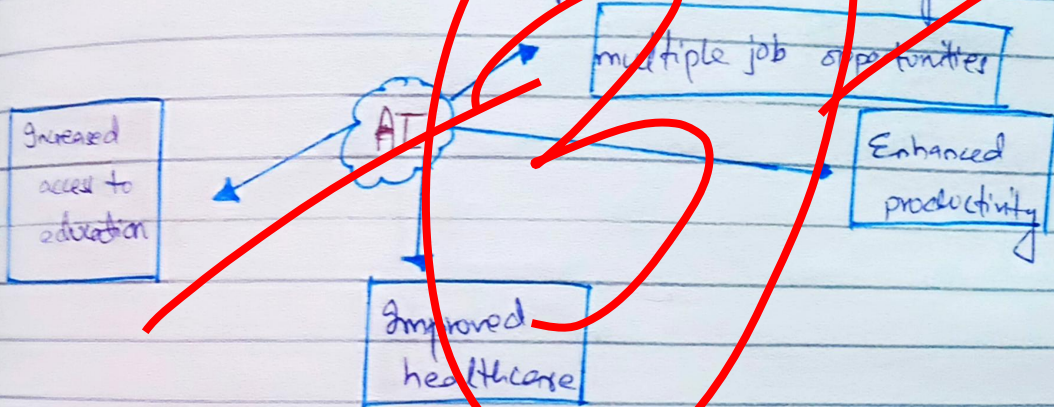 multiple job opportunities
AI
Increased
access to
education
Enhanced
productivity
3
Improved
healthcare